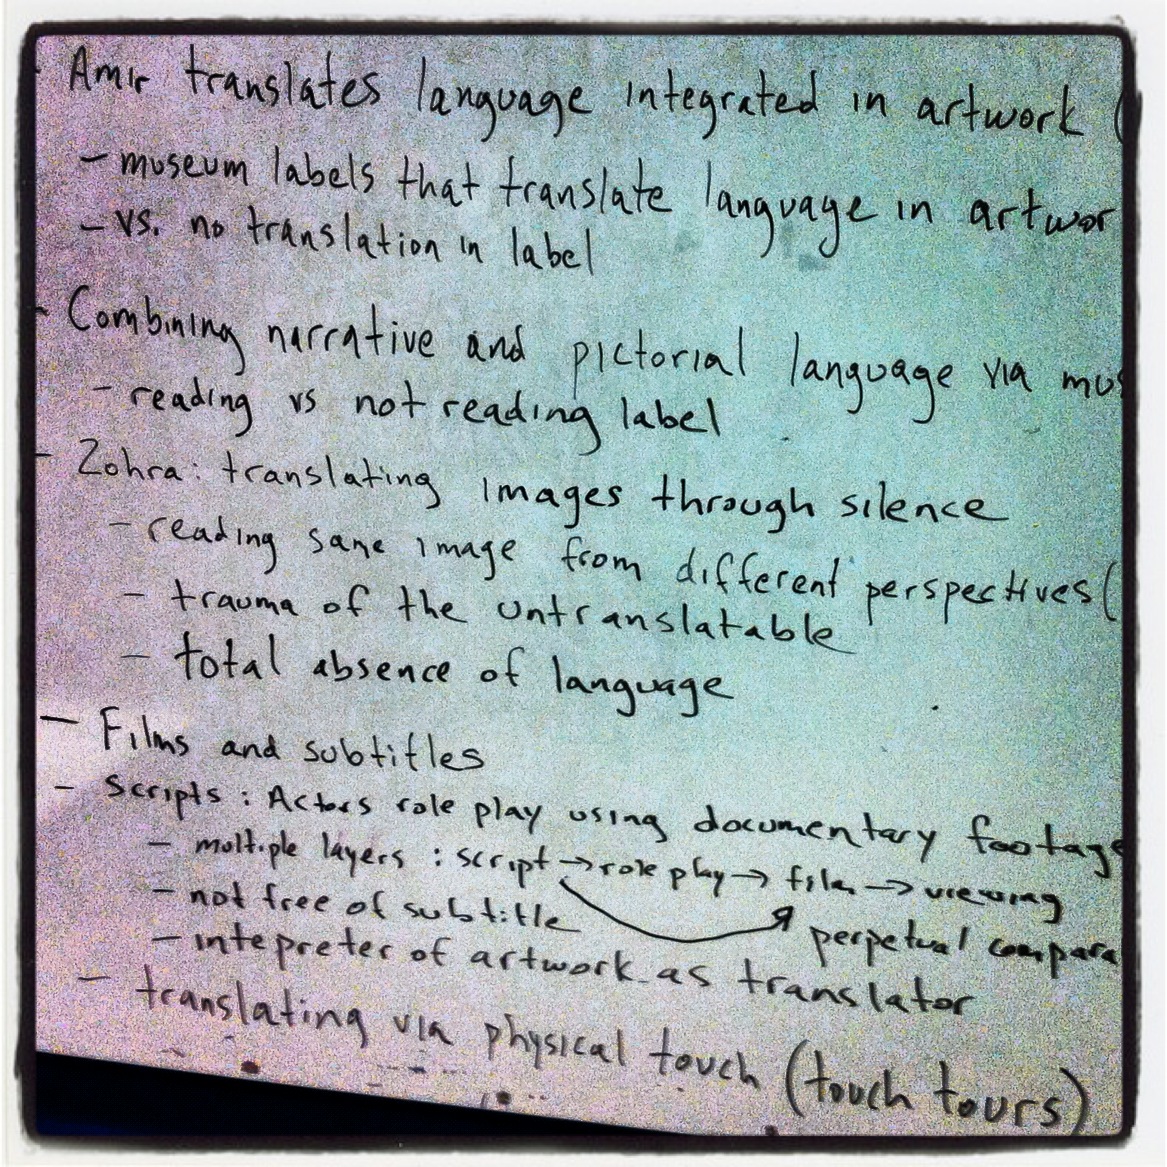 - Amir translates language integrated in artwork (
- museum labels that translate language in artwor
- vs. no translation in label
- Combining narrative and pictorial language via mus
- reading vs not reading label
- Zohra: translating images through silence
- reading same image from different perspectives (
- trauma of the untranslatable
- total absence of language
- Films and subtitles
- Scripts: Actors role play using documentary footage
- multiple layers: script → role play → film → viewing
- not free of subtitle
perpetual compara
- intepreter of artwork as translator
- translating via physical touch (touch tours)